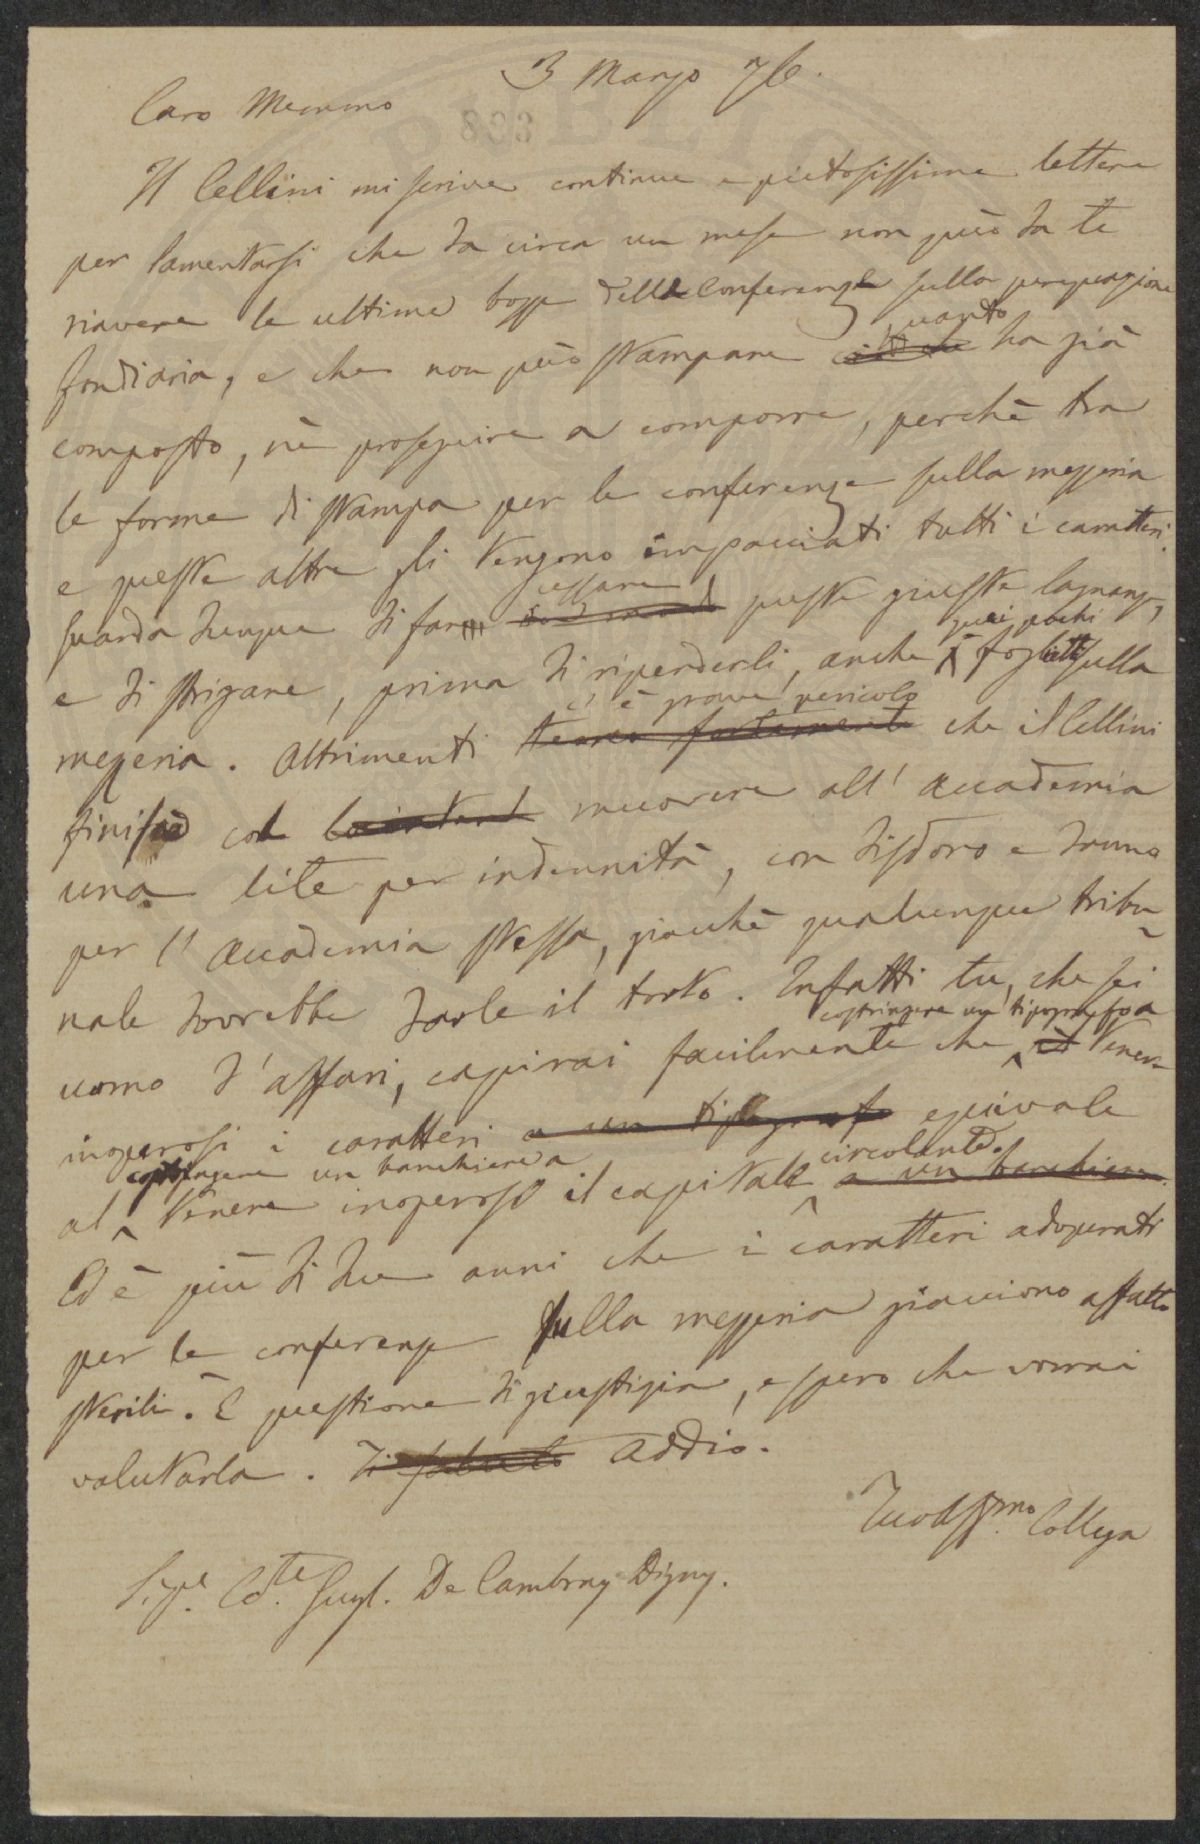 3 Marzo 76.
Caro Memmo
Il Cellini mi scrive continue e pietosissime lettere
per lamentarsi che da circa un mese non può da te
riavere le ultime bozze delle Conferenze sulla perequazione
quanto
fondiaria, e che non può stampare ha già
composto, nè proseguire a comporre, perchè tra
le forme di stampa per le conferenze sulla mezzeria
e queste altre gli vengono impacciati tutti i caratteri.
cessare
Guarda dunque di far queste giuste lagnanze,
quei pochi
e di strigare, prima di riperderli, anche foglietti sulla
c'è grave pericolo
mezzeria. Altrimenti temo fortemente che il Cellini
finisca col muovere all' Accademia
una lite per indennità, con disdoro e danno
per l' Accademia stessa, giacchè qualunque tribu-
nale dovrebbe darle il torto. Infatti tu, che sei
costringere un tipografo a
uomo d'affari, capirai facilmente che il tener
inoperosi i caratteri a un tipografo equivale
costringere un banchiere a circolante.
al tenere inoperoso il capitale a un banchiere.
Ed è più di due anni che i caratteri adoperati
per le conferenze sulla mezzeria giacciono affatto
sterili. È questione di giustizia, e spero che vorrai
valutarla. Ti saluto Addio.
Tuo Aff.mo Collega
Sig.e C.te Gugl. De Cambray Digny.